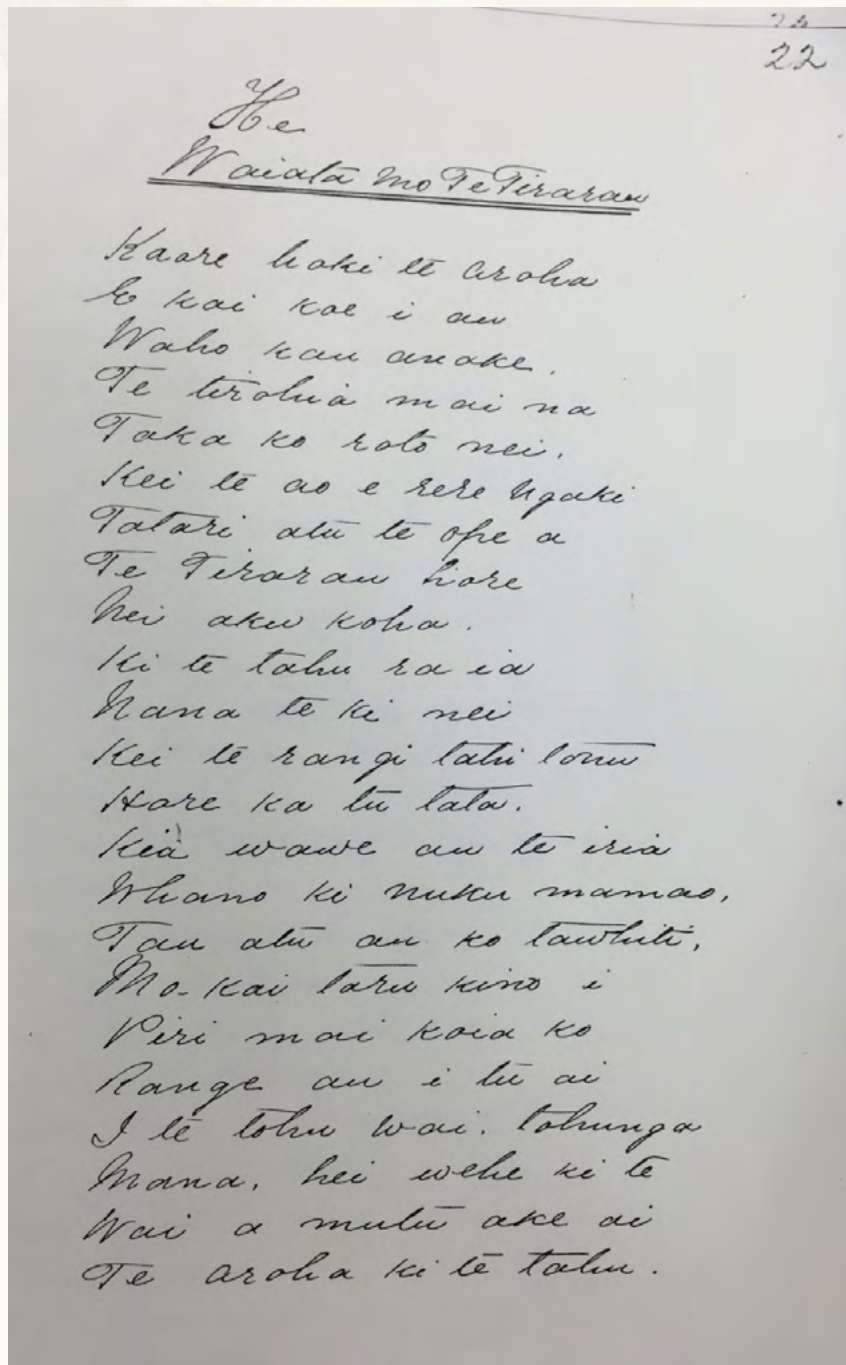 22
He
Waiata mo Te Tirarau
Kaore hoki te aroha
E kai koe i au
Waho kau anake.
Te tirohia mai na
Taka ko roto nei.
Kei te ao e rere Ngaki
Tatari atu te ope a
Te Tirarau hore
Nei aku koha.
Ki te tahu ra ia
Nana te ki nei
Kei te rangi tahi tonu
Hore ka tu tata.
Kia wawe au te iria
Whano ki nuku mamao,
Tau atu au ko tawhiti,
Mo-kai taru kino i
Piri mai koia ko
Range au i tu ai
I te tohu wai. tohunga
Mana, hei wehe ki te
Wai a mutu ake ai
Te aroha ki te tahu.